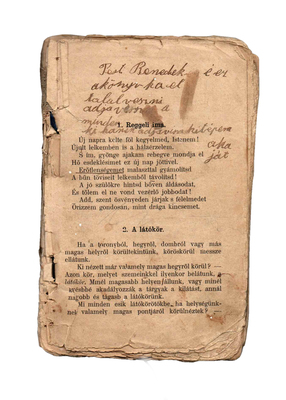 Pest Benedek é ez
a könyvka el
talál veszni
adja
minden
aka
ját
1. Reggeli ima.
Új napra kelte föl kegyelmed, Istenem!
Újult lelkemben is a hálaérzelem.
S im, gyönge ajakam rebegve mondja el
Hő esdekléseimet ez új nap jöttivel.
Erőtlenségemet malasztiul gyámolítsd
A bűn töviseit lelkemből távolítsd!
A jó szülőkre hintsd bőven áldásodat,
És tőlem el ne vond vezérlő jobbodat!
Add, szent ösvényeden járjak s félelmedet
Őrizzem gondosan, mint drága kincsemet.
2. A látókör.
Ha a toronyból, hegyről, dombról vagy más
magas helyről körültekintünk, köröskörül messze
ellátunk.
Ki nézett már valamely magas hegyről körül? —
Azon kör, melyet szemeinkkel ilyenkor belátunk, a
látókör. Minél magasabb helyen állunk, vagy minél
kevésbbé akadályozzák a tárgyak a kilátást, annál
nagyobb és tágabb a látókörünk.
Mi minden esik látókörötökbe, ha helységünk-
nek valamely magas pontjáról körülnéztek? —